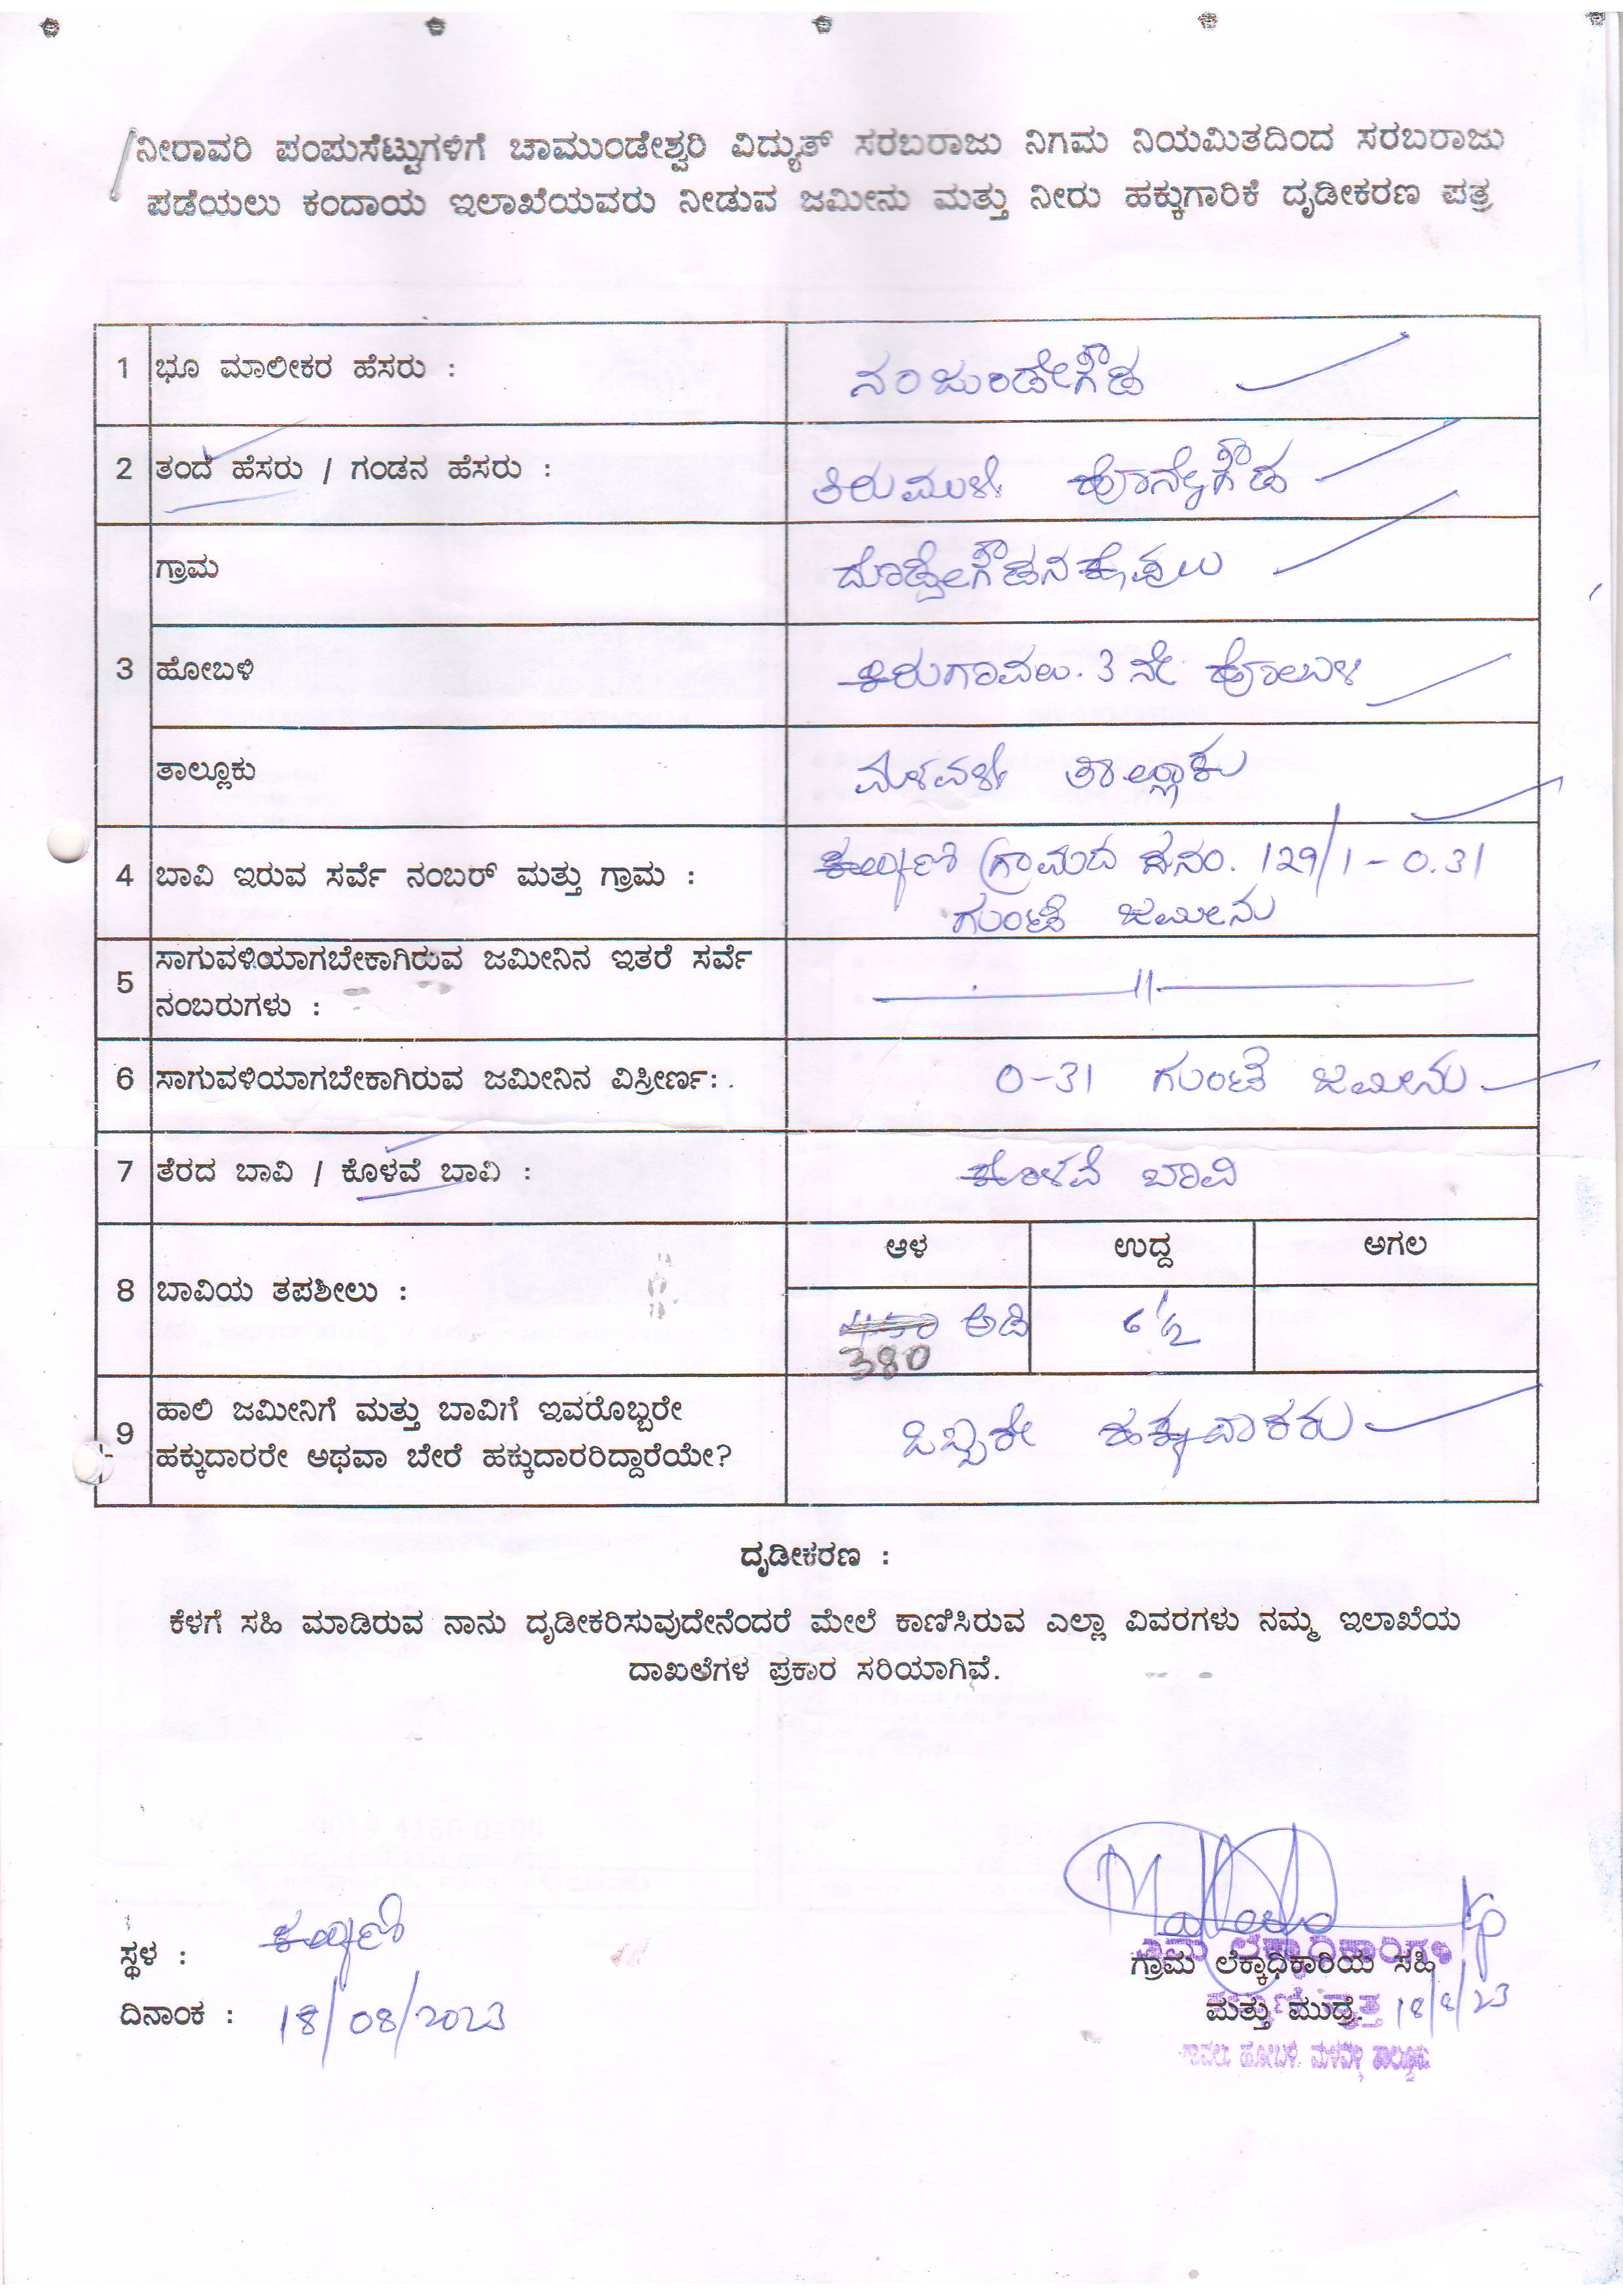 ನೀರಾವರಿ ಪಂಪುಸೆಟ್ಟುಗಳಿಗೆ ಚಾಮುಂಡೇಶ್ವರಿ ವಿದ್ಯುತ್ ಸರಬರಾಜು ನಿಗಮ ನಿಯಮಿತದಿಂದ ಸರಬರಾಜು
ಪಡೆಯಲು ಕಂದಾಯ ಇಲಾಖೆಯವರು ನೀಡುವ ಜಮೀನು ಮತ್ತು ನೀರು ಹಕ್ಕುಗಾರಿಕೆ ದೃಡೀಕರಣ ಪತ್ರ
1 ಭೂ ಮಾಲೀಕರ ಹೆಸರು : ನಂಜುಂಡೇಗೌಡ
2 ತಂದೆ ಹೆಸರು / ಗಂಡನ ಹೆಸರು : ತಿರುಮಳ್ಳಿ ಹೊನ್ನೇಗೌಡ
ಗ್ರಾಮ ದೊಡ್ಡೇಗೌಡನಕೊಪ್ಪಲು
3 ಹೋಬಳಿ ಕಿರುಗಾವಲು. 3 ನೇ ಹೋಬಳಿ
ತಾಲ್ಲೂಕು ಮಳವಳ್ಳಿ ತಾಲ್ಲೂಕು
4 ಬಾವಿ ಇರುವ ಸರ್ವೆ ನಂಬರ್ ಮತ್ತು ಗ್ರಾಮ : ಕಲ್ಕುಣಿ ಗ್ರಾಮದ ಸ.ನಂ. 129/1 - 0.31
ಗುಂಟೆ ಜಮೀನು
5 ಸಾಗುವಳಿಯಾಗಬೇಕಾಗಿರುವ ಜಮೀನಿನ ಇತರೆ ಸರ್ವೆ
ನಂಬರುಗಳು : —— 11 ——
6 ಸಾಗುವಳಿಯಾಗಬೇಕಾಗಿರುವ ಜಮೀನಿನ ವಿಸ್ತೀರ್ಣ: 0-31 ಗುಂಟೆ ಜಮೀನು
7 ತೆರದ ಬಾವಿ / ಕೊಳವೆ ಬಾವಿ : ಕೊಳವೆ ಬಾವಿ
ಆಳ ಉದ್ದ ಅಗಲ
8 ಬಾವಿಯ ತಪಶೀಲು : ಅಡಿ 6 1/2
380
9 ಹಾಲಿ ಜಮೀನಿಗೆ ಮತ್ತು ಬಾವಿಗೆ ಇವರೊಬ್ಬರೇ
ಹಕ್ಕುದಾರರೇ ಅಥವಾ ಬೇರೆ ಹಕ್ಕುದಾರರಿದ್ದಾರೆಯೇ? ಒಬ್ಬರೇ ಹಕ್ಕುದಾರರು
ದೃಡೀಕರಣ :
ಕೆಳಗೆ ಸಹಿ ಮಾಡಿರುವ ನಾನು ದೃಡೀಕರಿಸುವುದೇನೆಂದರೆ ಮೇಲೆ ಕಾಣಿಸಿರುವ ಎಲ್ಲಾ ವಿವರಗಳು ನಮ್ಮ ಇಲಾಖೆಯ
ದಾಖಲೆಗಳ ಪ್ರಕಾರ ಸರಿಯಾಗಿವೆ.
ಸ್ಥಳ : ಕಲ್ಕುಣಿ
ದಿನಾಂಕ : 18/08/2023
ಗ್ರಾಮ ಲೆಕ್ಕಾಧಿಕಾರಿಯ ಸಹಿ
ಮತ್ತು ಮುದ್ರೆ. 18/8/23
ಹೋಬಳಿ ಮಳವಳ್ಳಿ ತಾಲ್ಲೂಕು